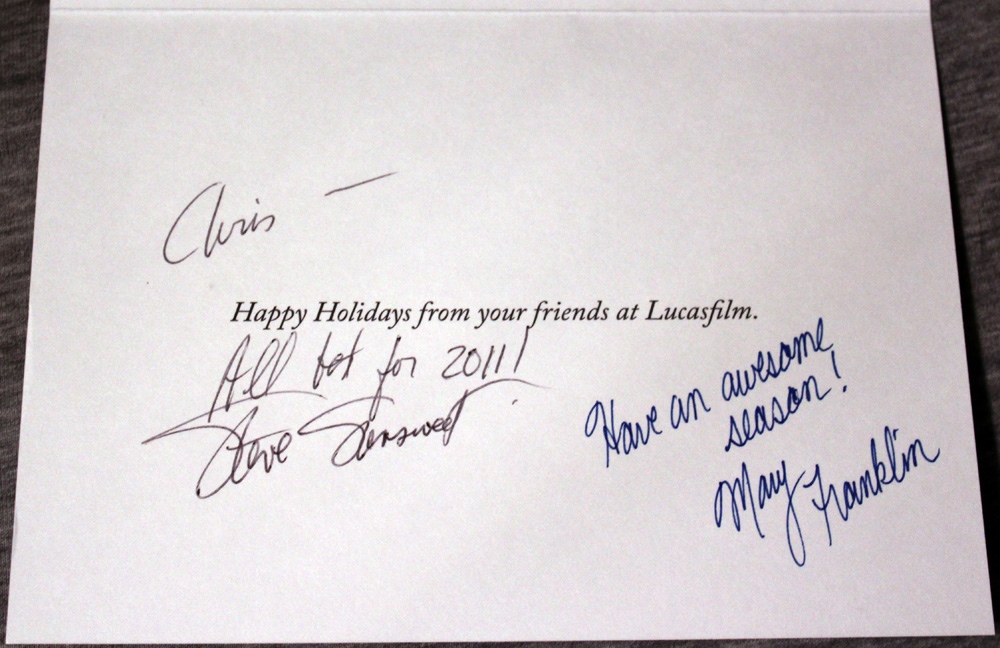 Chris —
Happy Holidays from your friends at Lucasfilm.
All best for 2011!
Steve Sansweet
Have an awesome
season!
Mary Franklin